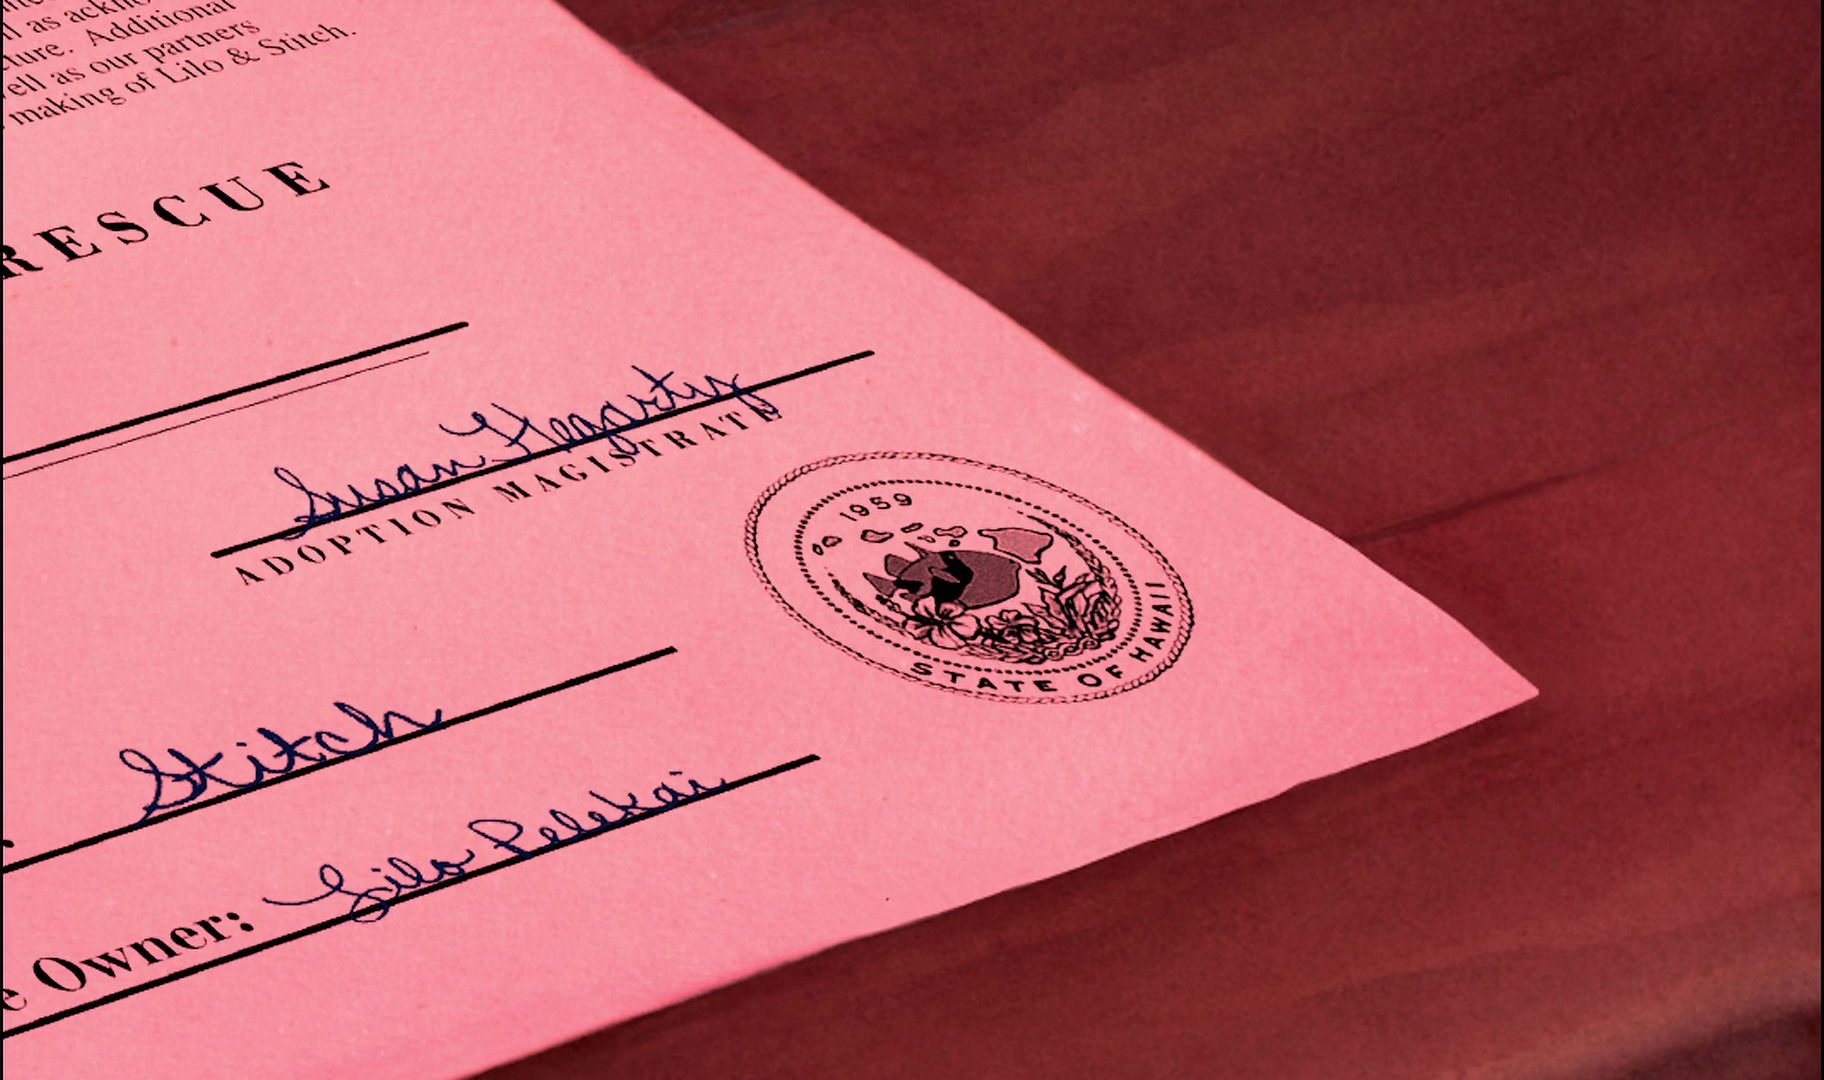 as ackno
ture. Additional
well as our partners
making of Lilo & Stitch.
RESCUE
Susan Hegarty
ADOPTION MAGISTRATE
1959
STATE OF HAWAII
Stitch
Owner: Lilo Pelekai